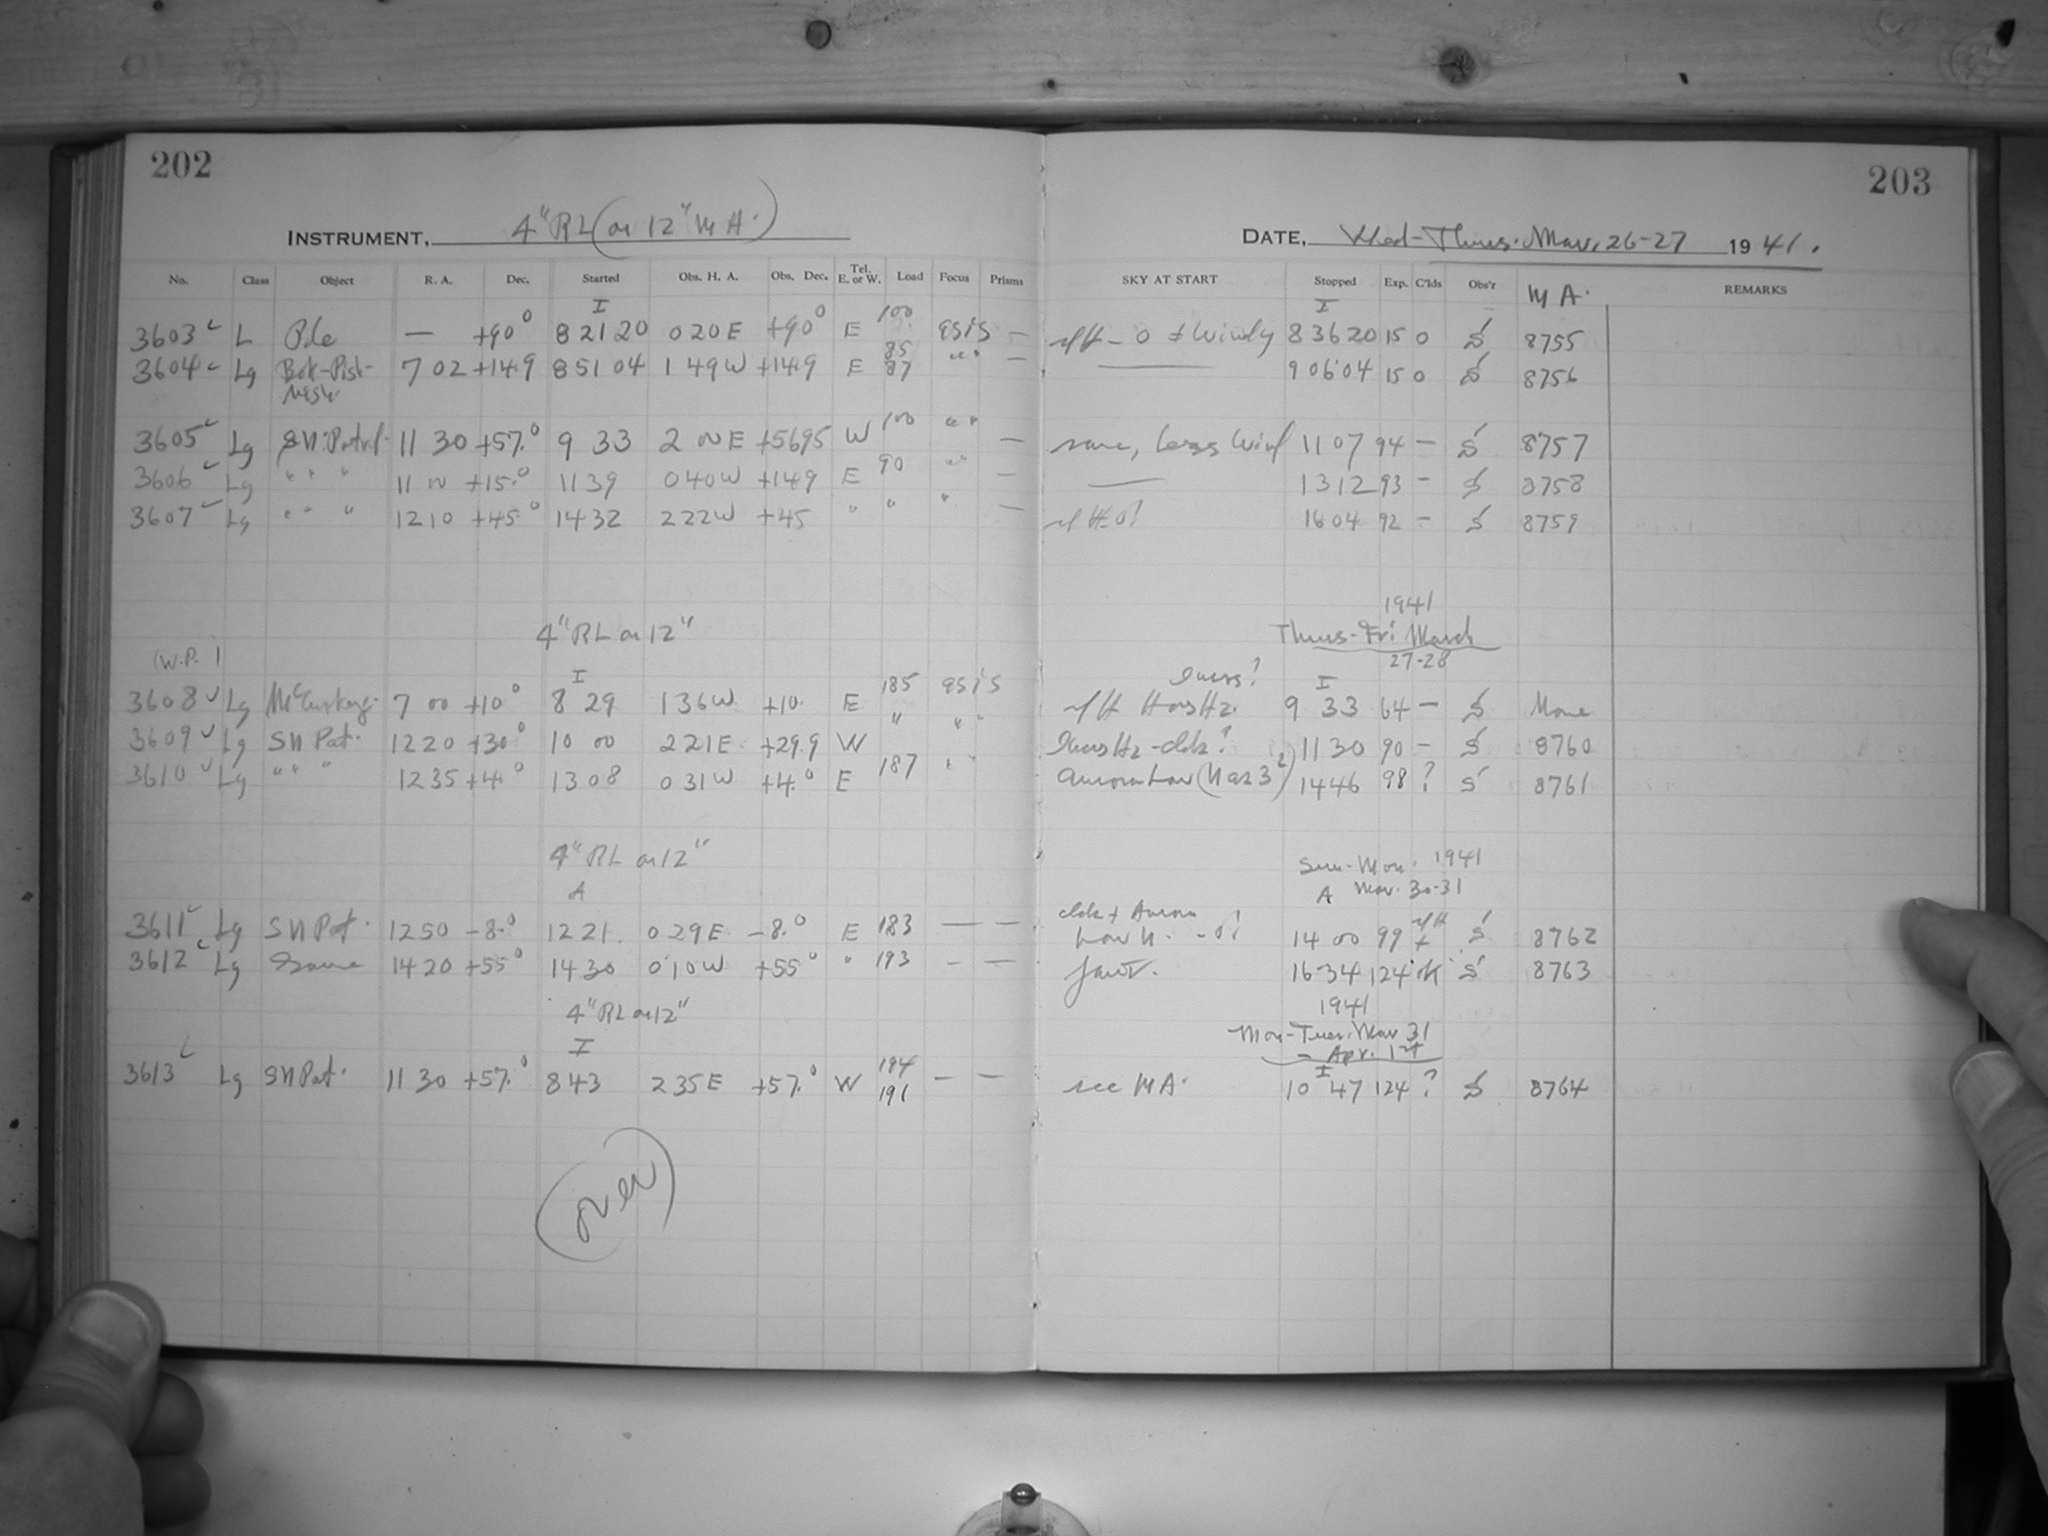 202
203
INSTRUMENT, 4" RL (on 12" MA.)
DATE, Wed-Thurs. Mar. 26-27 1941.
No. Class Object R. A. Dec. Started Obs. H. A. Obs. Dec. Tel. E. or W. Load Focus Prisms SKY AT START Stopped Exp. C'lds Obs'r MA. REMARKS
I I
3603 L Pole — +90° 8 21 20 0 20 E +90° E 100 — 0 + Windy 8 36 20 15 0 8755
3604 Lg 7 02 +14.9 8 51 04 1 49 W +14.9 E 85 87 " " — — 9 06 04 15 0 8756
3605 Lg SN. Patrol 11 30 +57.° 9 33 E +56.95 W 100 " " — same, less wind 11 07 94 — 8757
3606 Lg " " " +15.° 11 39 0 40 W +14.9 E 90 " " — — 13 12 93 — 8758
3607 Lg " " " 12 10 +45.° 14 32 2 22 W +45 " " " — 16 04 92 — 8759
4" RL on 12"
1941
Thurs-Fri March
27-28
(W.P. )
I I
3608 Lg McCuskey 7 00 +10° 8 29 1 36 W +10. E 185 9 33 64 — None
3609 Lg SN Pat. 12 20 +30° 10 00 2 21 E +29.9 W " " " 11 30 90 — 8760
3610 Lg " " " 12 35 +4.° 13 08 0 31 W +4.° E 187 " " Aurora Low 14 46 98 ? S 8761
4" RL on 12"
Sun-Mon. 1941
A A Mar. 30-31
3611 Lg SN Pat. 12 50 -8.° 12 21 0 29 E -8.° E 183 — — clds + Aurora Low N. 14 00 99 S 8762
3612 Lg Same 14 20 +55° 14 30 0 10 W +55° " 193 — — 16 34 124 ok S 8763
4" RL on 12"
1941
Mon-Tues. Mar 31
- Apr. 1st
I I
3613 Lg SN Pat. 11 30 +57.° 8 43 2 35 E +57.° W 191 — — see MA. 10 47 124 ? 8764
(over)